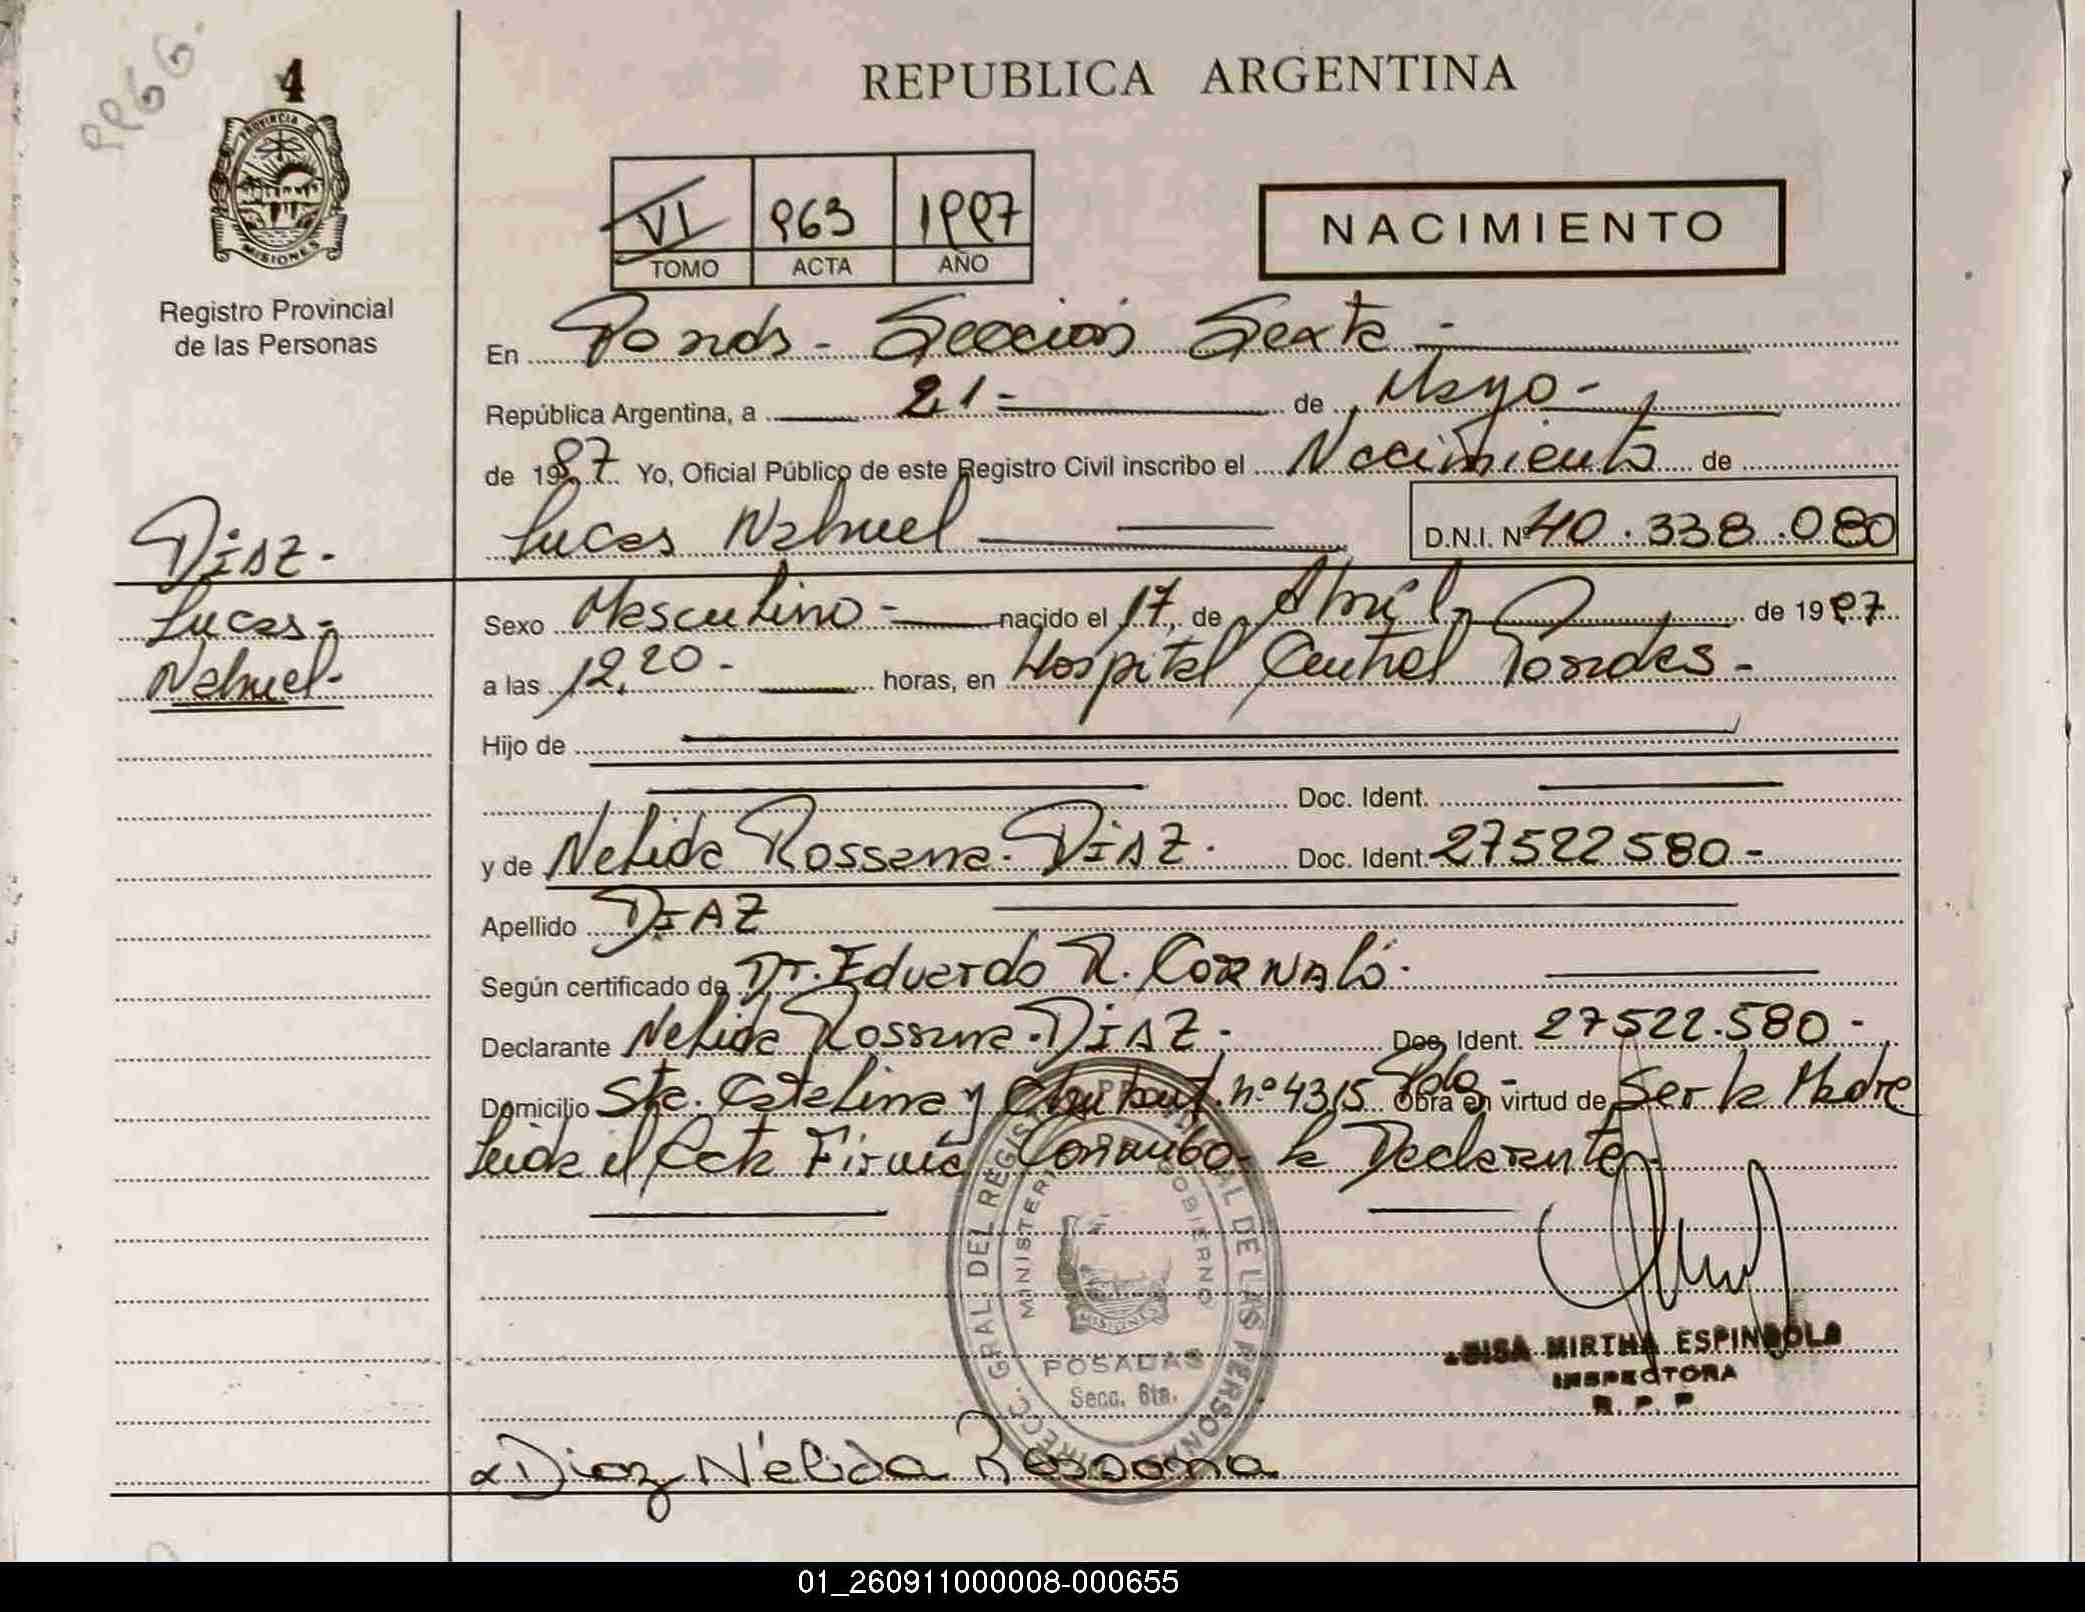 PPGG.
4
PROVINCIA DE
MISIONES
Registro Provincial
de las Personas
REPUBLICA ARGENTINA
VI 963 1997
TOMO ACTA AÑO
NACIMIENTO
En Posadas - Sección Sexta -
República Argentina, a 21 - de Mayo -
de 1997 Yo, Oficial Público de este Registro Civil inscribo el Nacimiento de
Lucas Nahuel
D.N.I. Nº 40.338.080
DIAZ -
Lucas -
Nahuel -
Sexo Masculino - nacido el 17, de Abril, de 1997
a las 12,20 - horas, en Hospital Central Posadas -
Hijo de
Doc. Ident.
y de Nelida Rossana - DIAZ - Doc. Ident. 27522580 -
Apellido DIAZ
Según certificado de Dr. Eduardo R.
Declarante Nelida Rossana - DIAZ - Doc. Ident. 27522.580 -
Domicilio Sta. Catalina y Chubut. nº 4315 Pdas - Obra en virtud de Ser la Madre
Leida el Acta Firma Conmigo - la Declarante -
DIRECC. GRAL DEL REGISTRO PROVINCIAL DE LAS PERSONAS
MINISTERIO GOBIERNO
MISIONES
POSADAS
Secc. 6ta.
MIRTHA ESPINDOLA
INSPECTORA
R. P. P.
Diaz Nélida Rossana
01_260911000008-000655